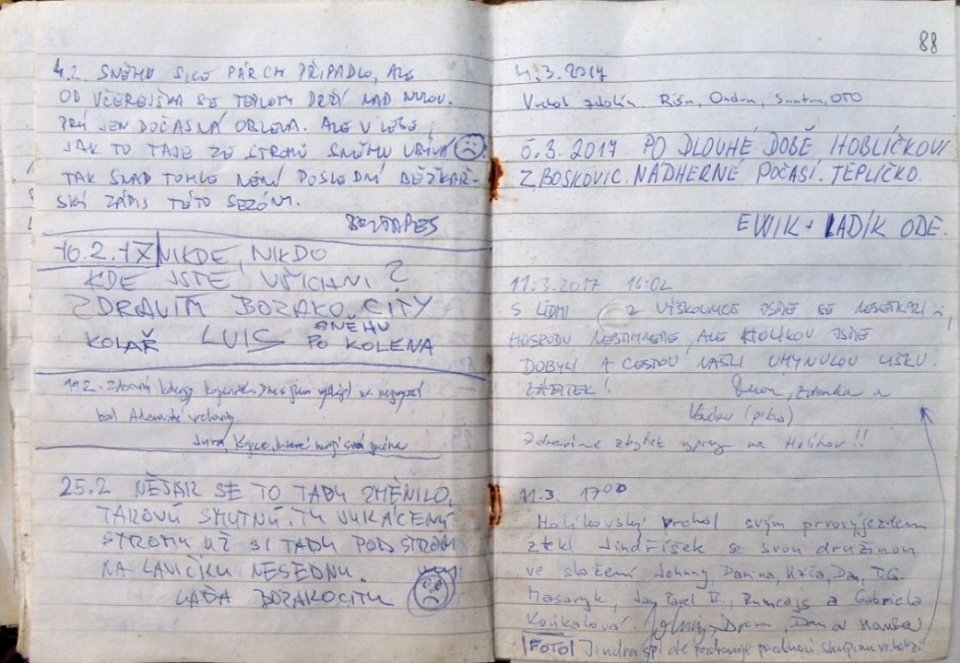 4.2. SNĚHU SICE PÁR CM PŘIPADLO, ALE
OD VČEREJŠKA SE TEPLOTY DRŽÍ NAD NULOU.
PRÝ JEN DOČASNÁ OBLEVA. ALE V LESE,
JAK TO TAJE ZE STROMŮ SNĚHU UBÝVÁ
TAK SNAD TOHLE NENÍ POSLEDNÍ BĚŽKAŘ-
SKÝ ZÁPIS TÉTO SEZÓNY.
16.2.17 NIKDE, NIKDO
KDE JSTE VŠICHNI?
ZDRAVÍM BOZAKO CITY
KOLAŘ LUIS SNĚHU PO KOLENA
19.2.
bod Adamovské vrchoviny
Jura,
25.2 NĚJAK SE TO TADY ZMĚNILO,
TAKOVÝ SMUTNÝ. TY VYKÁCENÝ
STROMY UŽ SI TADY POD STROM
NA LAVIČKU NESEDNU.
LAĎA BOZAKOCITY
88
4.3.2017
Vrchol zdolán Ríša, Ondra, OTO
5.3.2017 PO DLOUHÉ DOBĚ HOBLÍČKOVI
Z BOSKOVIC. NÁDHERNÉ POČASÍ. TEPLÍČKO.
EWIK + LADÍK ODE.
11.3.2017 16:02
S LIDMI Z VYŠKOVICE JSME SE NESETKALI
HOSPODU NESTIHNEME, ALE HOLÍKOV JSME
DOBYLI A CESTOU NAŠLI UHYNULOU LIŠKU.
ZÁŽITEK! Zdenka a
Václav (pes)
Zdravíme zbytek výpravy na Holíkov!!
11.3. 17⁰⁰
Holíkovský vrchol svým prvovýjezdem
ztekl Jindříšek se svou družinou
ve složení Johnny Darina, Káča, Dan, T.G.
Masaryk, Jan Pavel II., Rumcajs a Gabriela
Koukalová. Dan a
FOTO Jindra spí ale pozdravuje